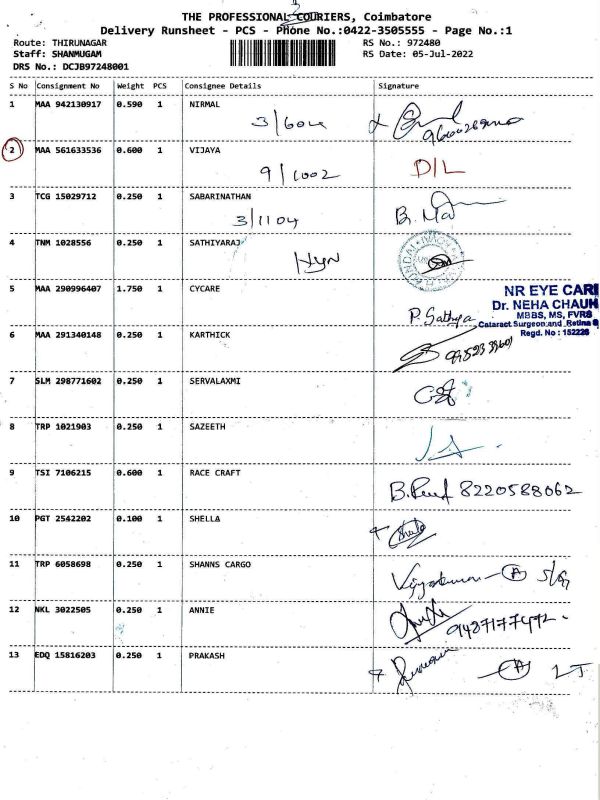 THE PROFESSIONAL COURIERS, Coimbatore
Delivery Runsheet - PCS - Phone No.:0422-3505555 - Page No.:1
Route: THIRUNAGAR RS No.: 972480
Staff: SHANMUGAM RS Date: 05-Jul-2022
DRS No.: DCJB97248001
S No Consignment No Weight PCS Consignee Details Signature
1 MAA 942130917 0.590 1 NIRMAL
3/604
2 MAA 561633536 0.600 1 VIJAYA
9/1002 D/L
3 TCG 15029712 0.250 1 SABARINATHAN
3/1104
4 TNM 1028556 0.250 1 SATHIYARAJ
5 MAA 290996407 1.750 1 CYCARE
NR EYE CARE
Dr. NEHA CHAUH
MBBS, MS, FVRS
P. Sathya Cataract Surgeon and Retina
Regd. No : 152226
6 MAA 291340148 0.250 1 KARTHICK
7 SLM 298771602 0.250 1 SERVALAXMI
8 TRP 1021903 0.250 1 SAZEETH
9 TSI 7106215 0.600 1 RACE CRAFT
8220588062
10 PGT 2542202 0.100 1 SHELLA
11 TRP 6058698 0.250 1 SHANNS CARGO
12 NKL 3022505 0.250 1 ANNIE
9487177492
13 EDQ 15816203 0.250 1 PRAKASH